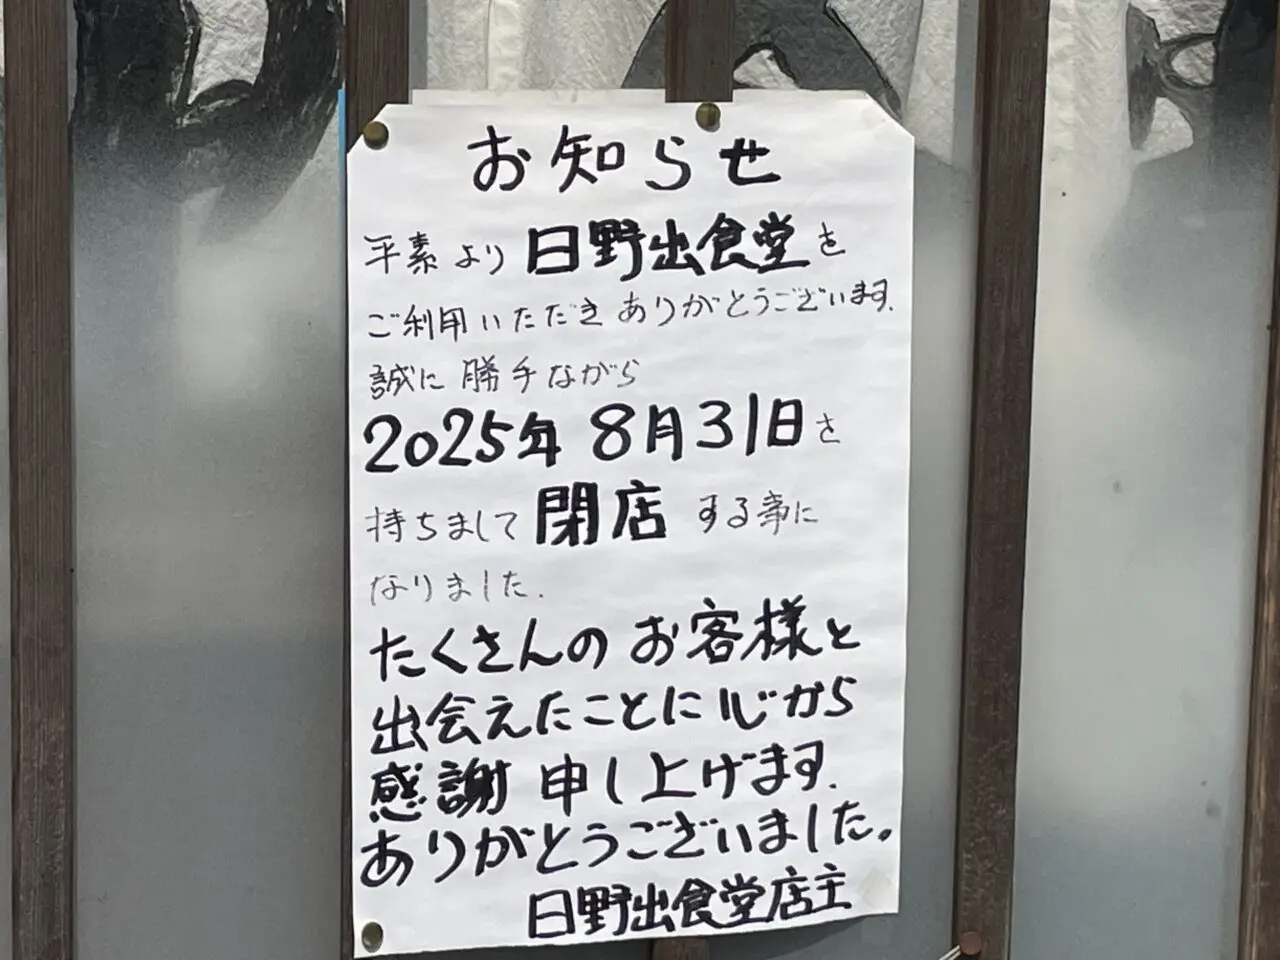 お知らせ
平素より日野出食堂を
ご利用いただきありがとうございます.
誠に勝手ながら
2025年8月31日を
持ちまして閉店する事に
なりました.
たくさんのお客様と
出会えたことに心から
感謝申し上げます.
ありがとうございました。
日野出食堂店主